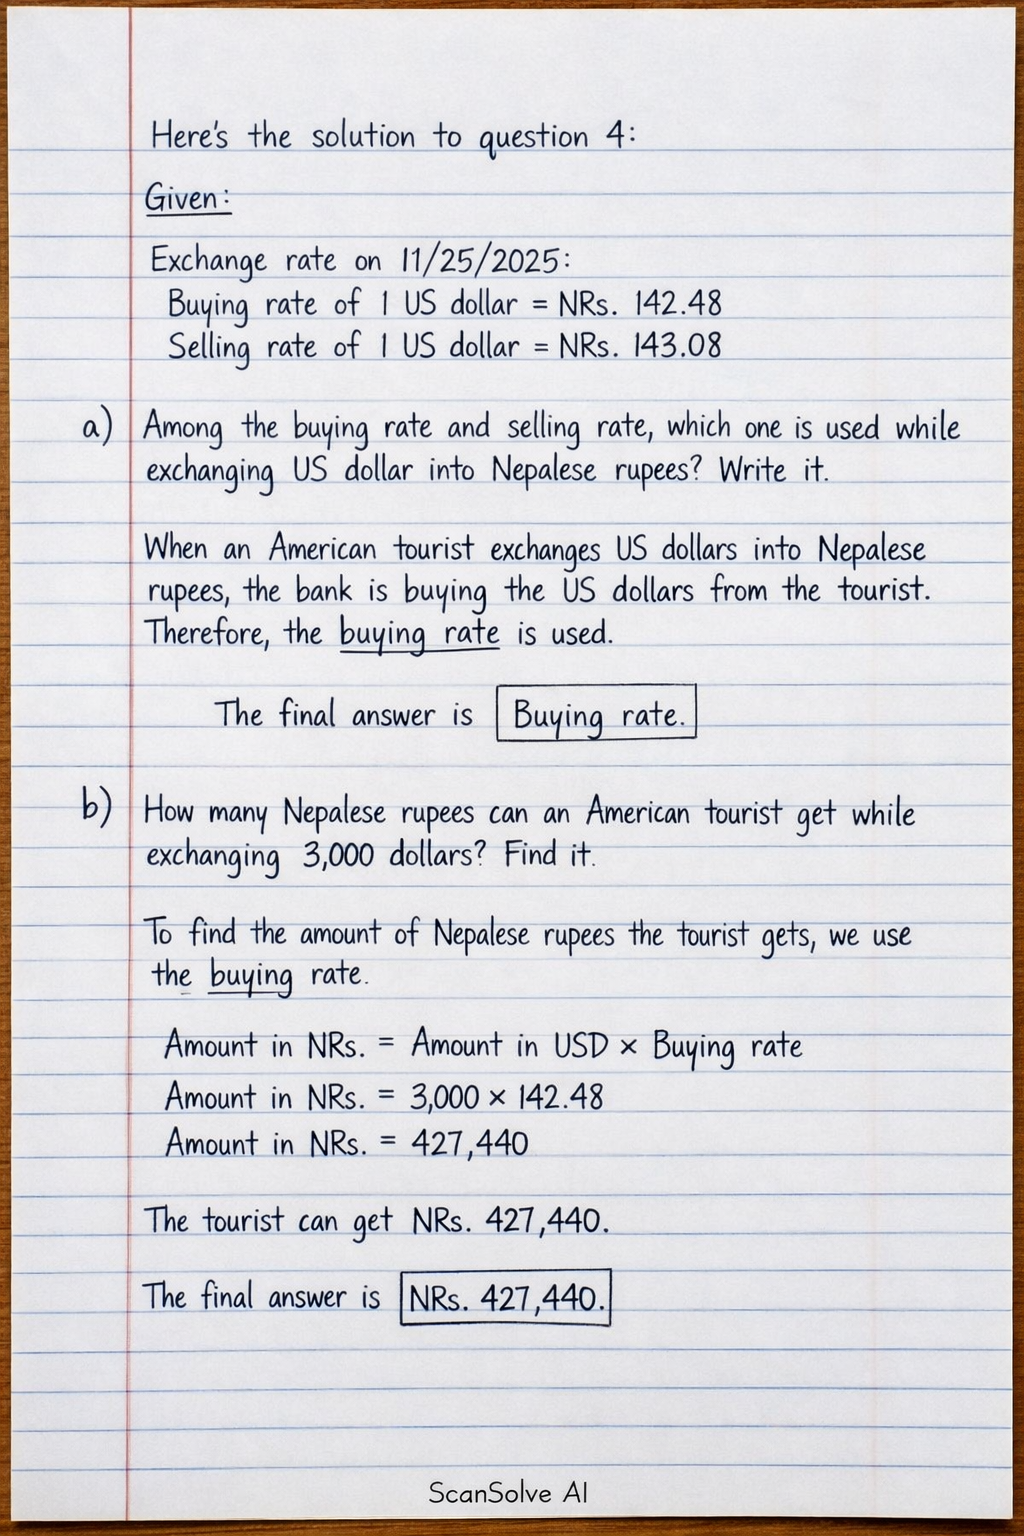 Here's the solution to question 4:
Given:
Exchange rate on 11/25/2025:
Buying rate of 1 US dollar = NRs. 142.48
Selling rate of 1 US dollar = NRs. 143.08
a) Among the buying rate and selling rate, which one is used while
exchanging US dollar into Nepalese rupees? Write it.
When an American tourist exchanges US dollars into Nepalese
rupees, the bank is buying the US dollars from the tourist.
Therefore, the buying rate is used.
The final answer is Buying rate.
b) How many Nepalese rupees can an American tourist get while
exchanging 3,000 dollars? Find it.
To find the amount of Nepalese rupees the tourist gets, we use
the buying rate.
Amount in NRs. = Amount in USD × Buying rate
Amount in NRs. = 3,000 × 142.48
Amount in NRs. = 427,440
The tourist can get NRs. 427,440.
The final answer is NRs. 427,440.
ScanSolve AI